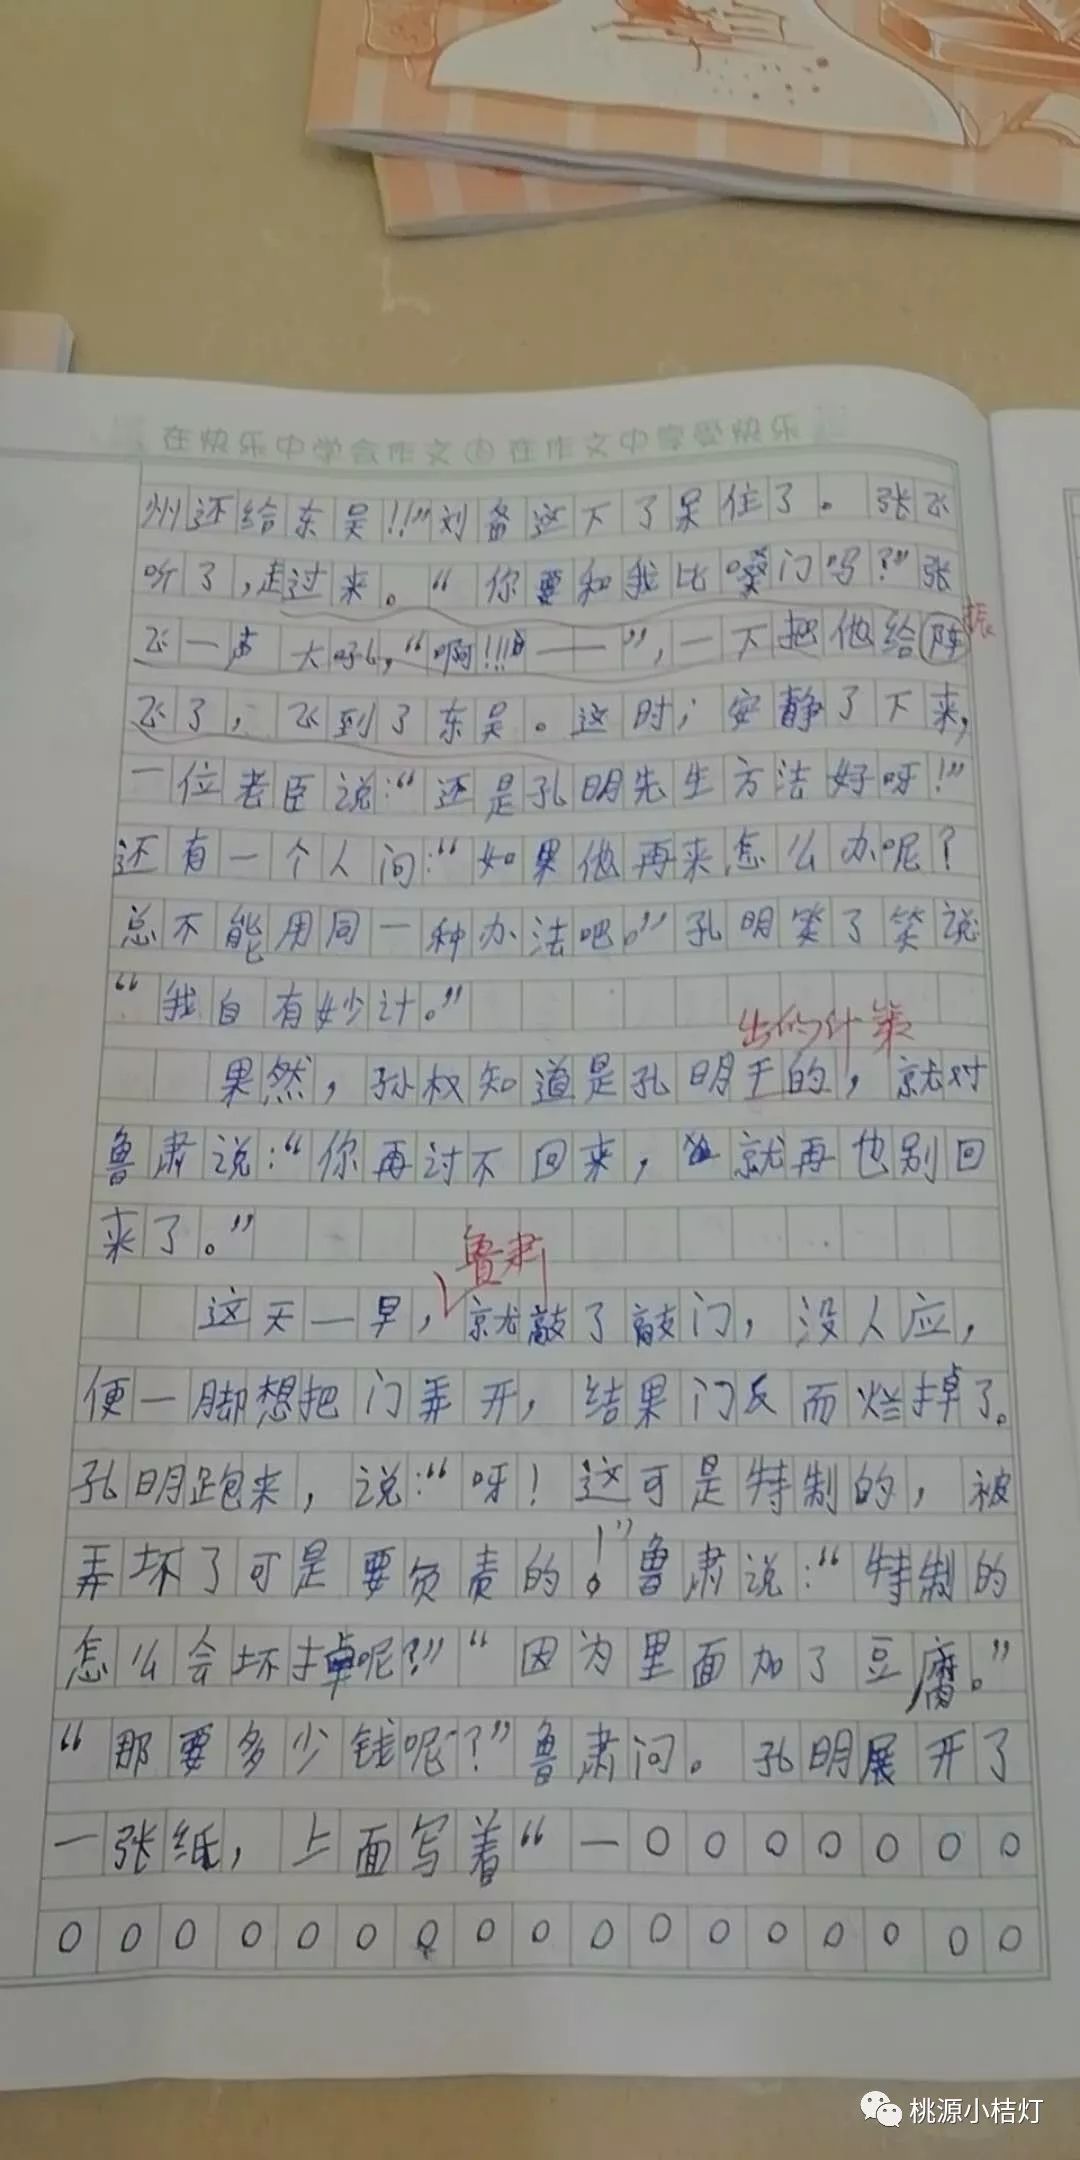 在快乐中学会作文 在作文中享受快乐
州还给东吴!!”刘备这下了呆住了。张飞
听了,走过来。“你要和我比嗓门吗?”张
飞一声大吼,“啊!!!——”,一下把他给阵
振
飞了,飞到了东吴。这时;安静了下来,
一位老臣说:“还是孔明先生方法好呀!”
还有一个人问:“如果他再来怎么办呢?
总不能用同一种办法吧。”孔明笑了笑说
“我自有妙计。”
出的计策
果然,孙权知道是孔明干的,就对
鲁肃说:“你再讨不回来,就再也别回
来了。”
鲁肃
这天一早,就敲了敲门,没人应,
便一脚想把门弄开,结果门反而烂掉了。
孔明跑来,说:“呀!这可是特制的,被
弄坏了可是要负责的!”鲁肃说:“特制的
怎么会坏掉呢?”“因为里面加了豆腐。”
“那要多少钱呢?”鲁肃问。孔明展开了
一张纸,上面写着“一0000000
00000000000000000
桃源小桔灯